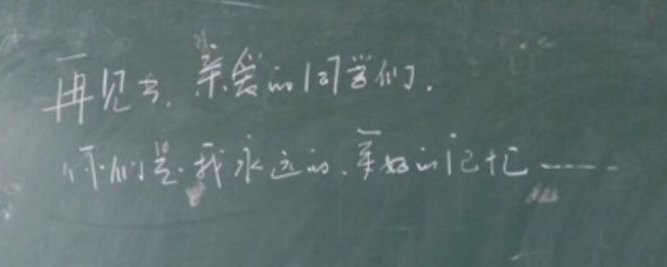 再见了,亲爱的同学们.
你们是我永远的、美好的记忆……